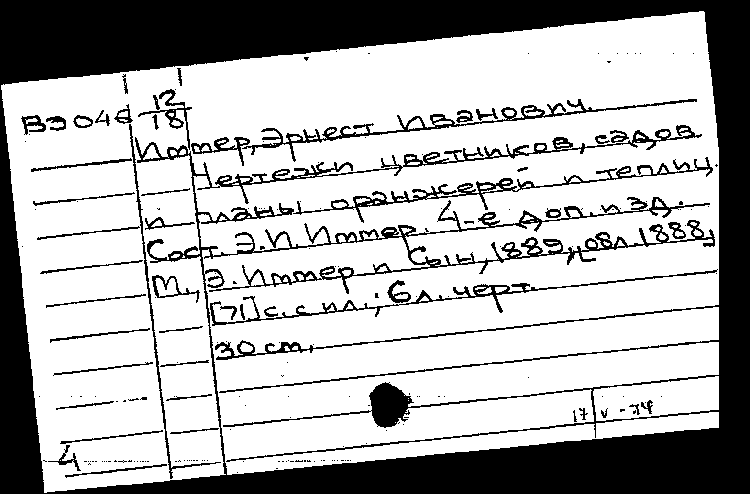 В3046 12/18
Иммер, Эрнест Иванович.
Чертежи цветников, садов
и планы оранжерей и теплиц.
Сост. Э.И. Иммер. 4-е доп. изд.
М., Э. Иммер и Сын, 1889, [обл. 1888]
[71] с. с ил.; 6 л. черт.
30 cm.
17 V-74
4